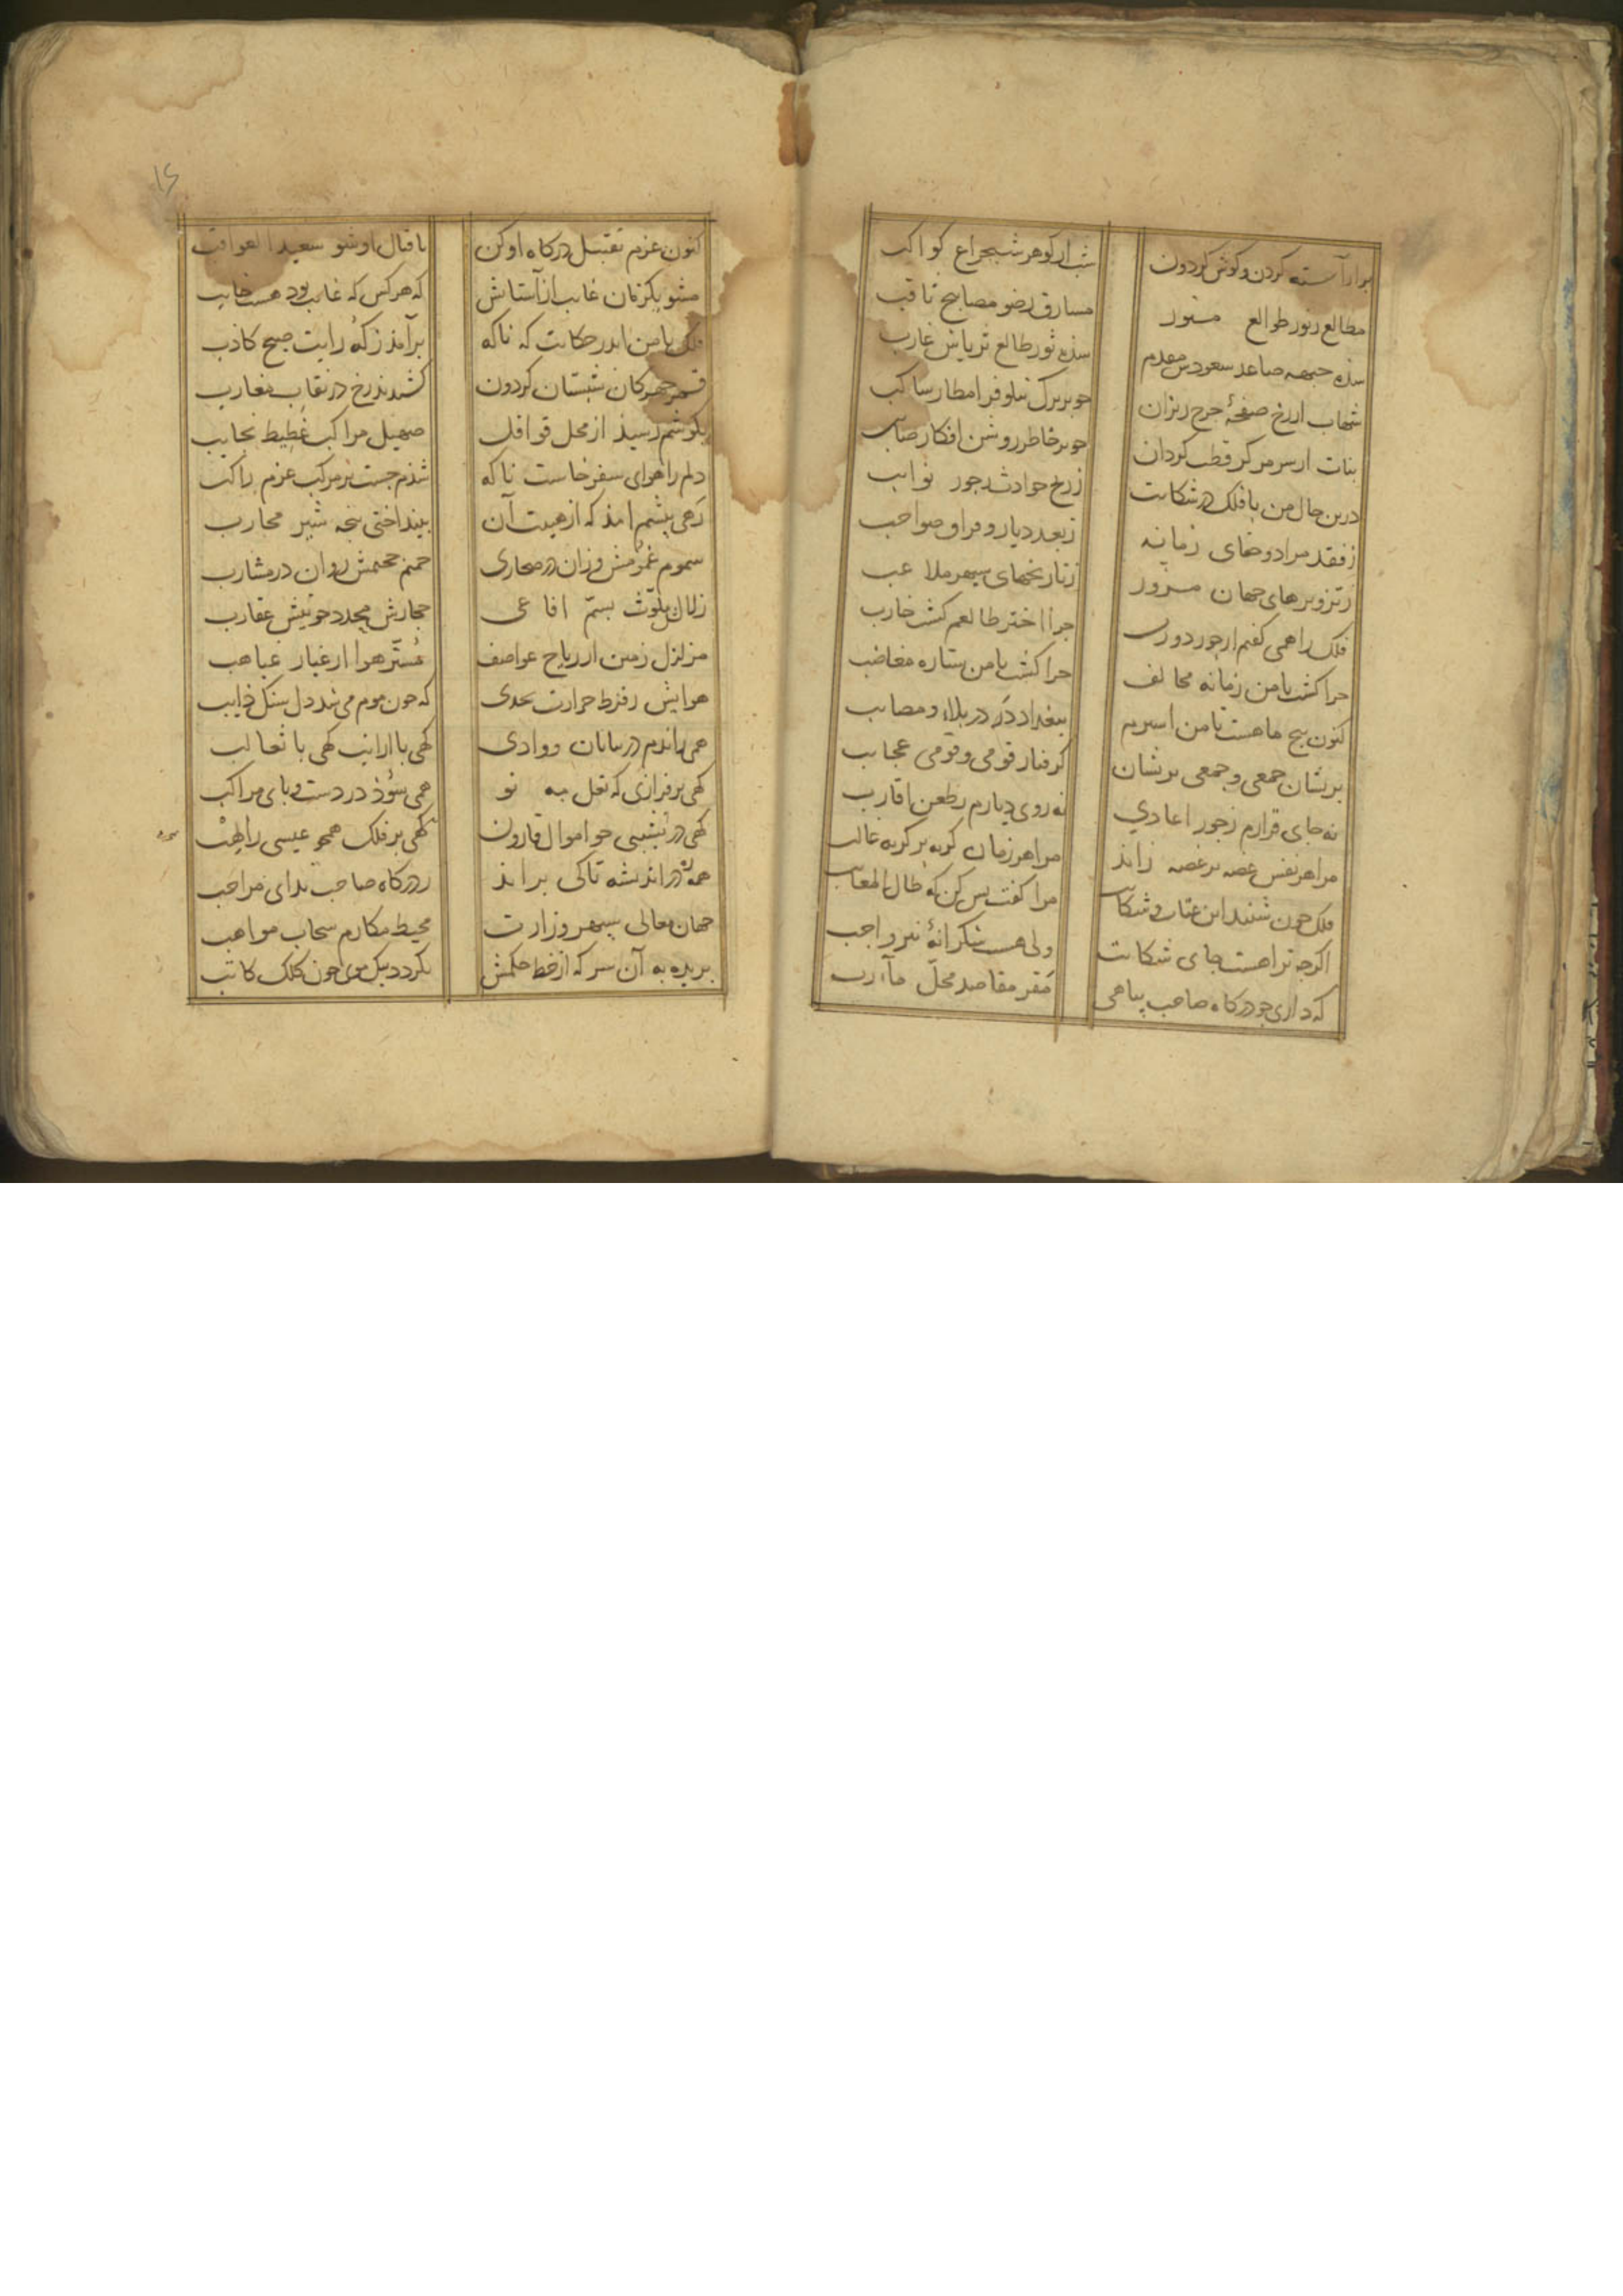 برآراسته کردن و کوش کردون شب از کوهر شبچراغ کواکب
مطالع ز نور طوالع منور مسارق ز ضو مصابیح ثاقب
شده جبهه صاعد سعودش مقدم شده ثور طالع ثریاش غارب
شهاب از رخ صفحهٔ چرخ ریزان چو بر برک نیلوفر امطار ساکب
بنات از سر مرکز قطب کردان چو بر خاطر روشن افکار صائب
درین حال من با فلک در شکایت ز رنج حوادث ز جور نوایب
ز فقد مراد و جفای زمانه ز بعد دیار و فراق صواحب
ز تزویرهای جهان مزور ز نارنجهای سپهر ملاعب
فلک را همی کفتم از جور دورت چرا اختر طالعم کشت خارب
چرا کشت با من زمانه مخالف چرا کشت با من ستاره مغاضب
کنون پنج ماهست تا من اسیرم ببغداد در در بلا و مصائب
پریشان جمعی و جمعی پریشان کرفتار قومی و قومی عجایب
نه جای قرارم ز جور اعادی نه روی دیارم ز طعن اقارب
مرا هر نفس غصه بر غصه زاید مرا هر زمان کریه بر کریه غالب
فلک چون شنید این عتاب و شکایت مرا کفت بس کن که طال المعاتب
اکرچه ترا هست جای شکایت ولی هست شکرانهٔ نیز واجب
که داری چو درکاه صاحب پناهی مقر مقاصد محل مآرب
۱۶
کنون عزم تقبیل درکاه او کن باقبال او شو سعید العواقب
مشو یکزمان غایب از آستانش که هر کس که غایب بود هست خایب
فلک با من اندر حکایت که ناکه برآمد ز که رایت صبح کاذب
قمر چهرکان شبستان کردون کشیدند رخ در نقاب مغارب
بکوشم رسید از محل قوافل صهیل مراکب غطیط نجایب
دلم را هوای سفر خاست ناکه شدم جست بر مرکب عزم راکب
رهی پیشم آمد که از هیبت آن بینداختی پنجه شیر محارب
سموم غمومش وزان در صحاری حمیم جحیمش روان در مشارب
زلال ملوث بسم افاعی حجارش محدد چو نیش عقارب
مزلزل زمین از ریاح عواصف مستر هوا از غبار غیاهب
هوایش ز فرط حرارت بحدی که چون موم می شد دل سنک ذایب
همی راندم در بیابان و وادی کهی با ارانب کهی با ثعالب
کهی بر فرازی که نعل مه نو همی سوذ در دست و پای مراکب
کهی در نشیبی چو اموال قارون کهی بر فلک همچو عیسی راهب
همه ره در اندیشه تا کی براند ز درکاه صاحب ندای مراحب
جهان معالی سپهر وزارت محیط مکارم سحاب مواهب
بریده به آن سر که از خط حکمش بکردد بیک موی چون کلک کاتب